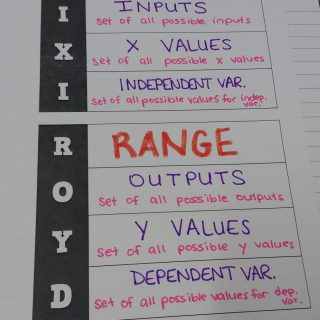 I
INPUTS
set of all possible inputs
X
X VALUES
set of all possible x values
I
INDEPENDENT VAR.
set of all possible values for indep. var.
R
RANGE
O
OUTPUTS
set of all possible outputs
Y
Y VALUES
set of all possible y values
D
DEPENDENT VAR.
set of all possible values for dep. var.